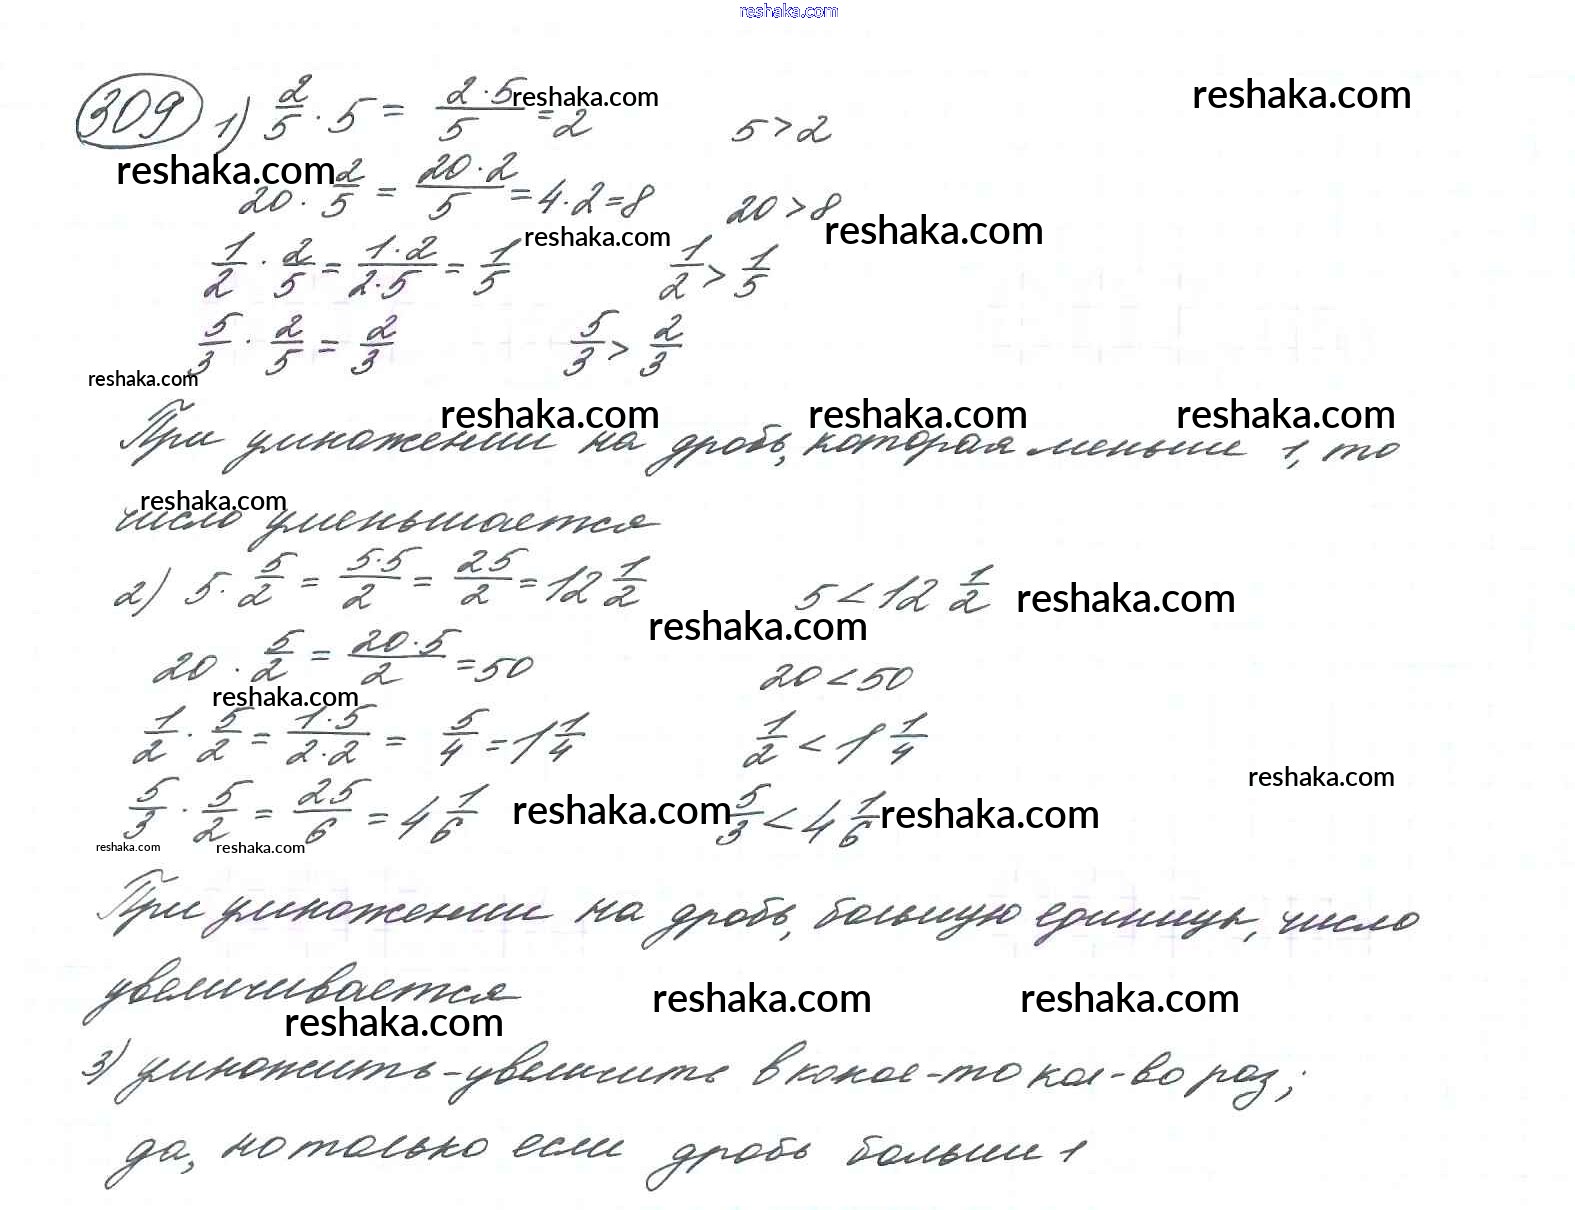 reshaka.com
309 1) 2/5 · 5 = 2·5/5 = 2 5 > 2
reshaka.com reshaka.com
reshaka.com
20 · 2/5 = 20·2/5 = 4·2 = 8 20 > 8
reshaka.com reshaka.com
1/2 · 2/5 = 1·2/2·5 = 1/5 1/2 > 1/5
5/3 · 2/5 = 2/3 5/3 > 2/3
reshaka.com
reshaka.com reshaka.com reshaka.com
При умножении на дробь, которая меньше 1, то
reshaka.com
число уменьшается
2) 5 · 5/2 = 5·5/2 = 25/2 = 12 1/2 5 < 12 1/2
reshaka.com
reshaka.com
20 · 5/2 = 20·5/2 = 50 20 < 50
reshaka.com
1/2 · 5/2 = 1·5/2·2 = 5/4 = 1 1/4 1/2 < 1 1/4
reshaka.com
5/3 · 5/2 = 25/6 = 4 1/6 5/3 < 4 1/6
reshaka.com reshaka.com
reshaka.com reshaka.com
При умножении на дробь, большую единицы, число
увеличивается
reshaka.com reshaka.com
reshaka.com
3) умножить - увеличить в какое-то кол-во раз;
да, но только если дробь больше 1